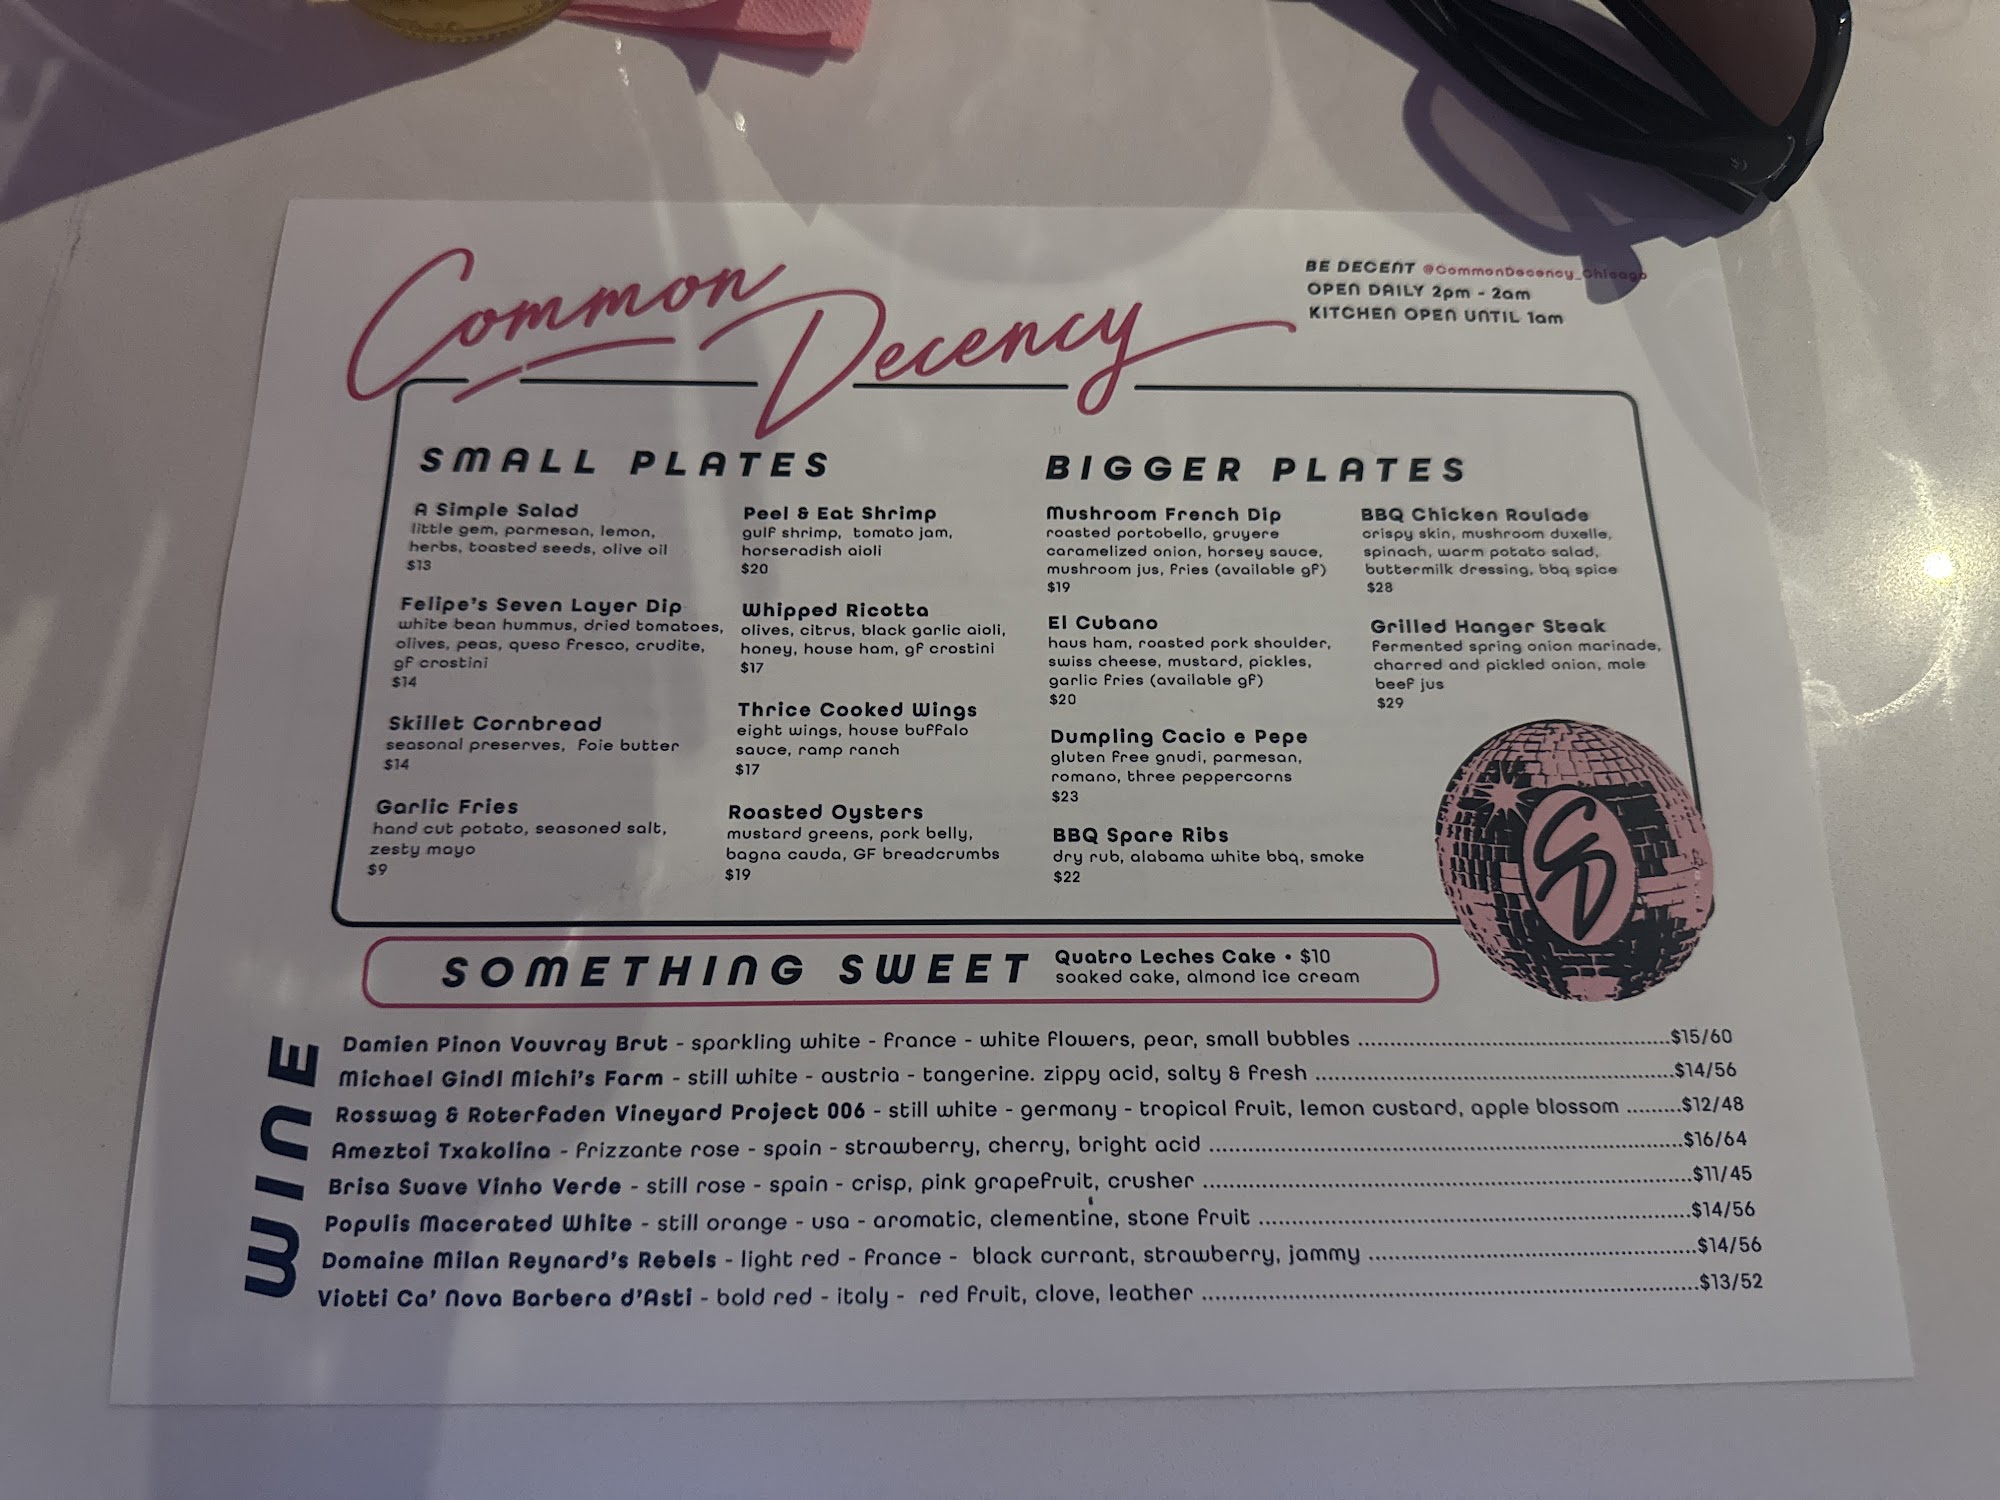 Common
Decency
BE DECENT @CommonDecency_Chicago
OPEN DAILY 2pm - 2am
KITCHEN OPEN UNTIL 1am
SMALL PLATES
A Simple Salad
little gem, parmesan, lemon,
herbs, toasted seeds, olive oil
$13
Felipe's Seven Layer Dip
white bean hummus, dried tomatoes,
olives, peas, queso fresco, crudite,
gf crostini
$14
Skillet Cornbread
seasonal preserves, foie butter
$14
Garlic Fries
hand cut potato, seasoned salt,
zesty mayo
$9
Peel & Eat Shrimp
gulf shrimp, tomato jam,
horseradish aioli
$20
Whipped Ricotta
olives, citrus, black garlic aioli,
honey, house ham, gf crostini
$17
Thrice Cooked Wings
eight wings, house buffalo
sauce, ramp ranch
$17
Roasted Oysters
mustard greens, pork belly,
bagna cauda, GF breadcrumbs
$19
BIGGER PLATES
Mushroom French Dip
roasted portobello, gruyere
caramelized onion, horsey sauce,
mushroom jus, fries (available gf)
$19
El Cubano
haus ham, roasted pork shoulder,
swiss cheese, mustard, pickles,
garlic fries (available gf)
$20
Dumpling Cacio e Pepe
gluten free gnudi, parmesan,
romano, three peppercorns
$23
BBQ Spare Ribs
dry rub, alabama white bbq, smoke
$22
BBQ Chicken Roulade
crispy skin, mushroom duxelle,
spinach, warm potato salad,
buttermilk dressing, bbq spice
$28
Grilled Hanger Steak
Fermented spring onion marinade,
charred and pickled onion, mole
beef jus
$29
CD
SOMETHING SWEET
Quatro Leches Cake • $10
soaked cake, almond ice cream
WINE
Damien Pinon Vouvray Brut - sparkling white - france - white flowers, pear, small bubbles ........ $15/60
Michael Gindl Michi's Farm - still white - austria - tangerine. zippy acid, salty & fresh ........ $14/56
Rosswag & Roterfaden Vineyard Project 006 - still white - germany - tropical fruit, lemon custard, apple blossom ........ $12/48
Ameztoi Txakolina - frizzante rose - spain - strawberry, cherry, bright acid ........ $16/64
Brisa Suave Vinho Verde - still rose - spain - crisp, pink grapefruit, crusher ........ $11/45
Populis Macerated White - still orange - usa - aromatic, clementine, stone fruit ........ $14/56
Domaine Milan Reynard's Rebels - light red - france - black currant, strawberry, jammy ........ $14/56
Viotti Ca' Nova Barbera d'Asti - bold red - italy - red fruit, clove, leather ........ $13/52